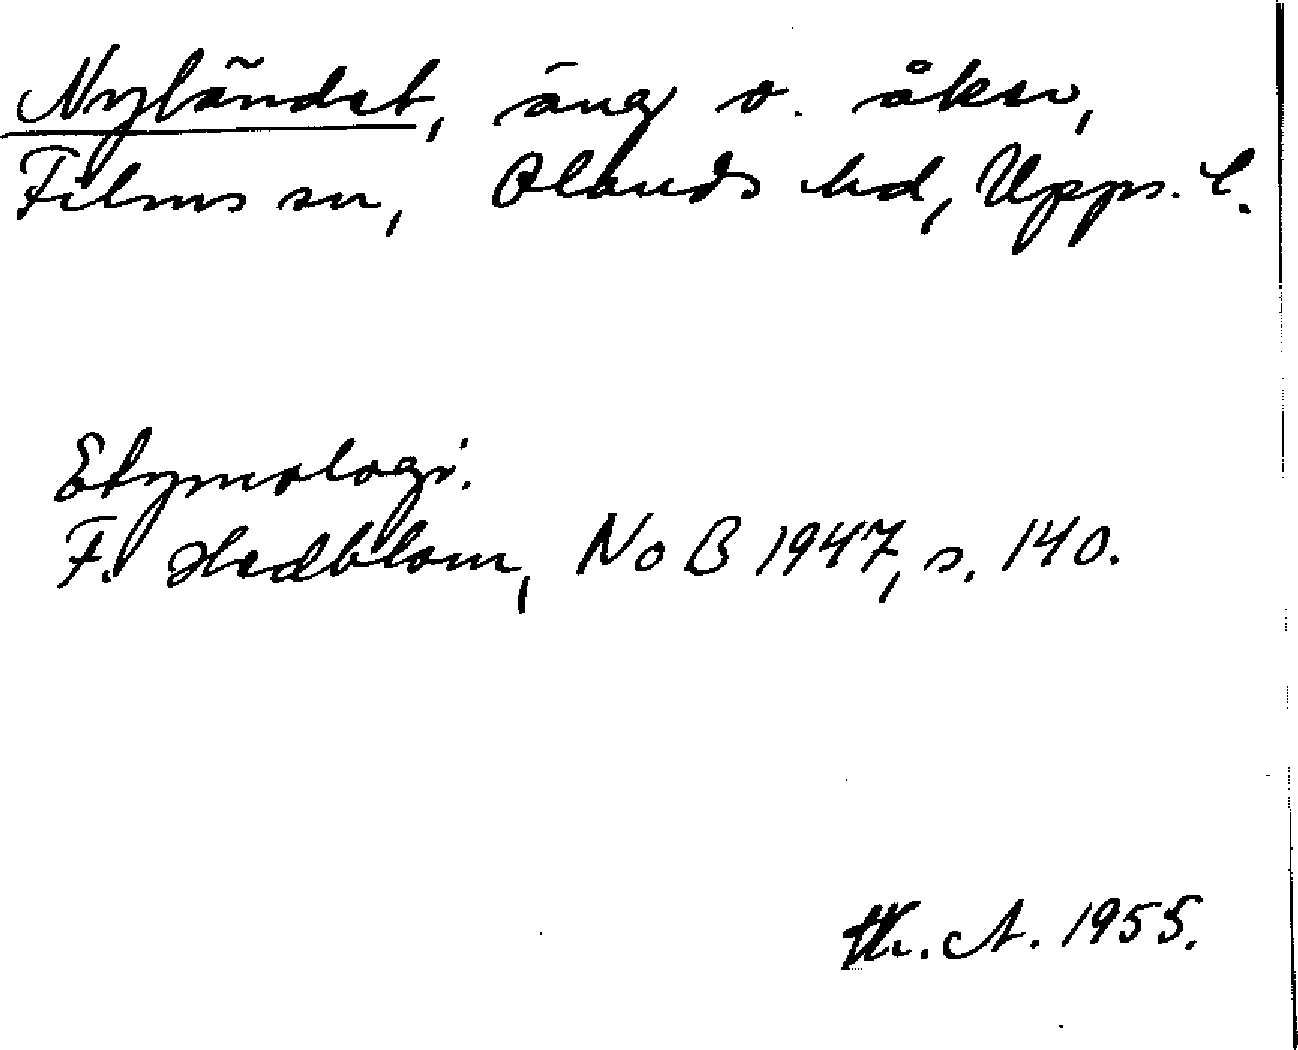 Nyländet, äng o. åker,
Films sn, Olands hd, Upps. l.
Etymologi.
F. Hedblom, NoB 1947, s. 140.
A. 1955.